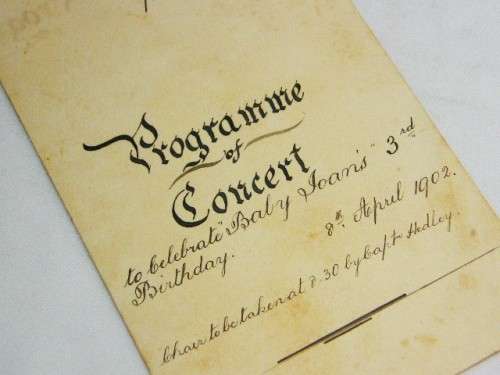 Programme
of
Concert
to Celebrate "Baby Joan's" 3rd
Birthday.
8th April 1902.
Chair to be taken at 8.30 by Captn Hedley.